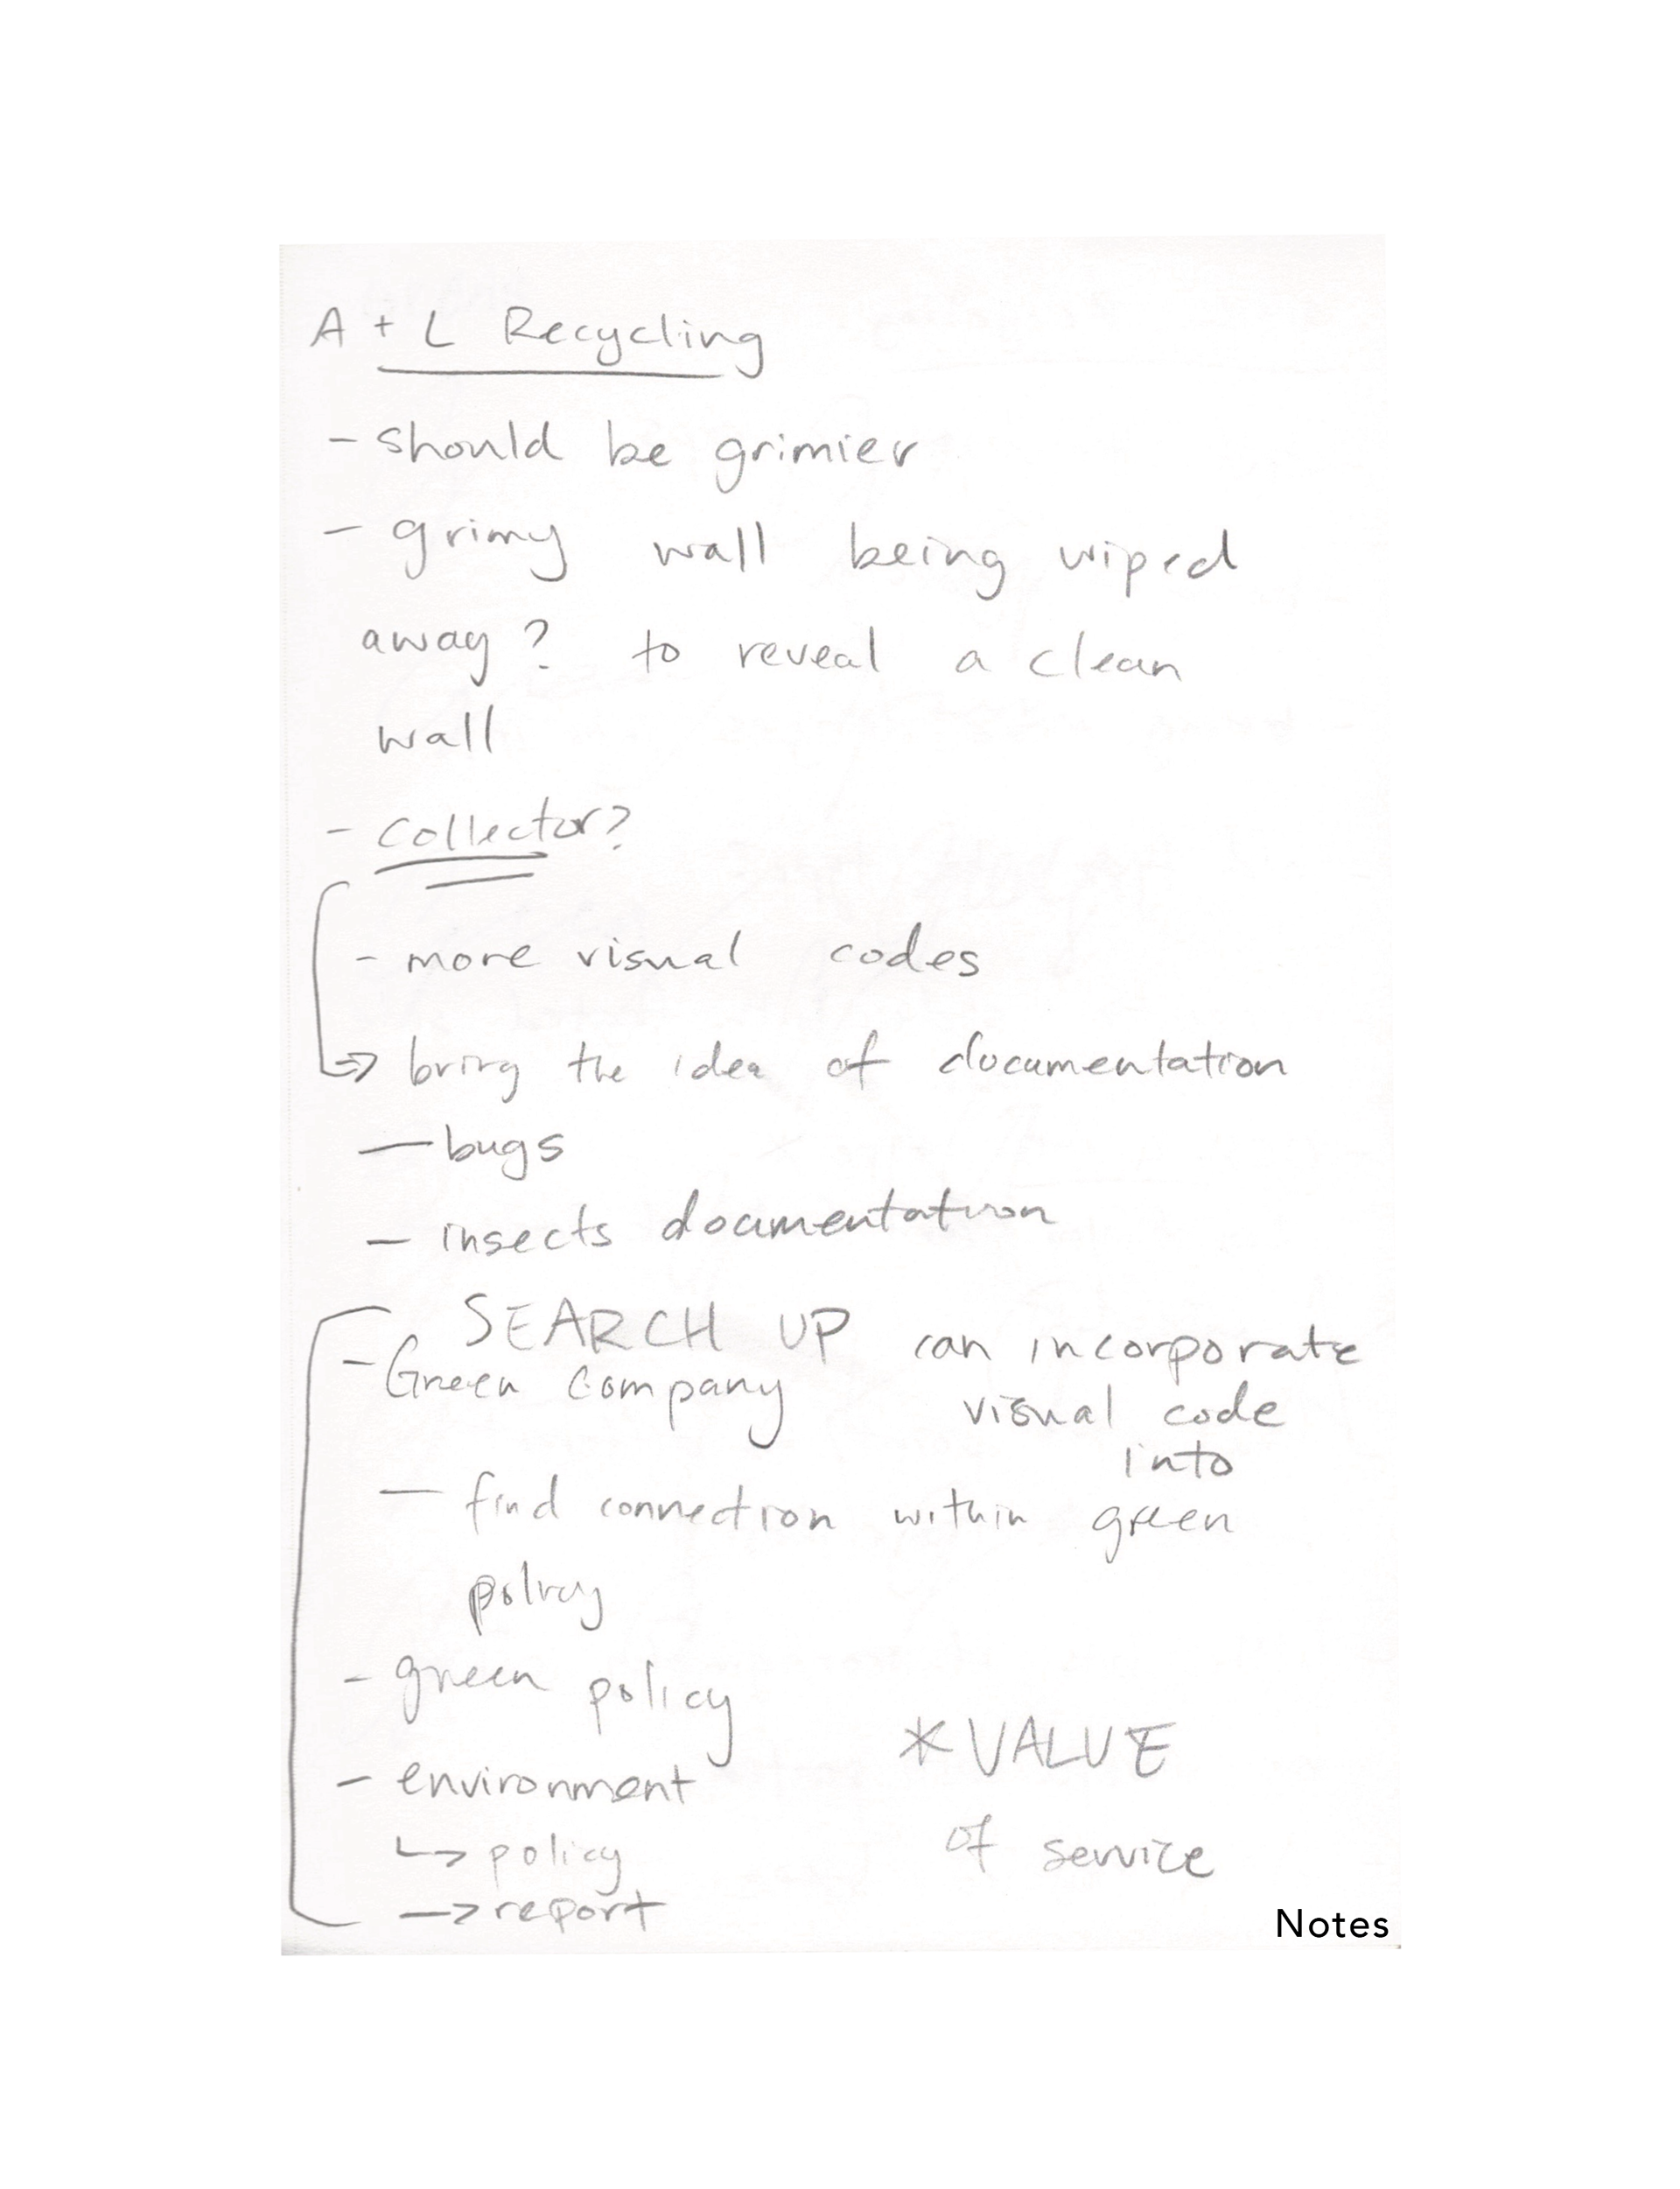 A + L Recycling
- should be grimier
- grimy wall being wiped
away? to reveal a clean
wall
- collector?
- more visual codes
→ bring the idea of documentation
— bugs
— insects documentation
SEARCH UP
- Green Company
can incorporate
visual code
into
— find connection within green
policy
- green policy
- environment
↳ policy
→ report
* VALUE
of service
Notes